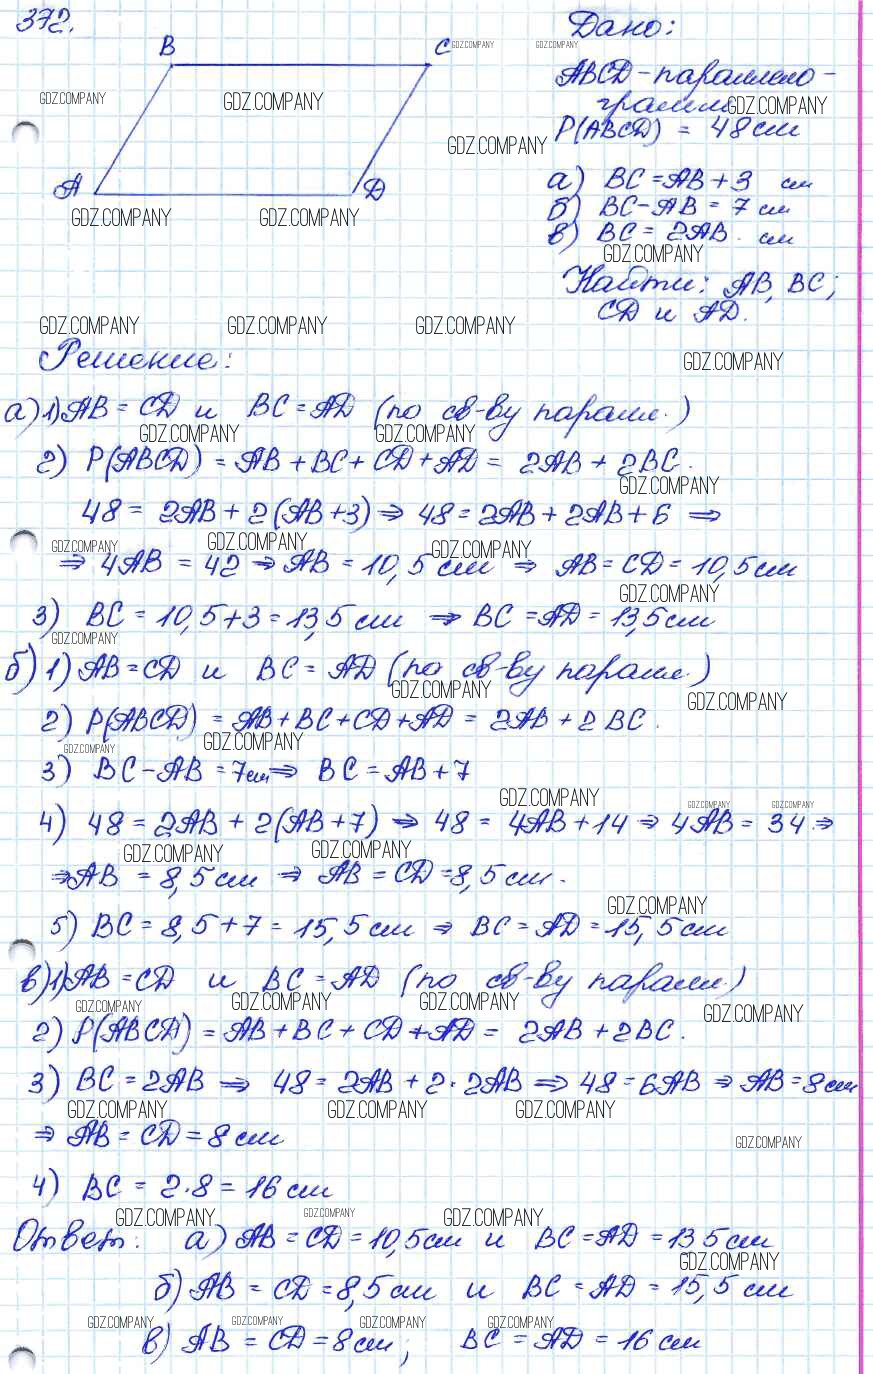 372.
B
C
A
D
Дано:
ABCD - параллело-
грамм
P(ABCD) = 48 см
а) BC = AB + 3 см
б) BC - AB = 7 см
в) BC = 2AB см
Найти: AB, BC;
CD и AD.
Решение:
а) 1) AB = CD и BC = AD (по св-ву паралл.)
2) P(ABCD) = AB + BC + CD + AD = 2AB + 2BC.
48 = 2AB + 2(AB + 3) ⇒ 48 = 2AB + 2AB + 6 ⇒
⇒ 4AB = 42 ⇒ AB = 10,5 см ⇒ AB = CD = 10,5 см
3) BC = 10,5 + 3 = 13,5 см ⇒ BC = AD = 13,5 см
б) 1) AB = CD и BC = AD (по св-ву паралл.)
2) P(ABCD) = AB + BC + CD + AD = 2AB + 2BC.
3) BC - AB = 7 см ⇒ BC = AB + 7
4) 48 = 2AB + 2(AB + 7) ⇒ 48 = 4AB + 14 ⇒ 4AB = 34 ⇒
⇒ AB = 8,5 см ⇒ AB = CD = 8,5 см.
5) BC = 8,5 + 7 = 15,5 см ⇒ BC = AD = 15,5 см
в) 1) AB = CD и BC = AD (по св-ву паралл.)
2) P(ABCD) = AB + BC + CD + AD = 2AB + 2BC.
3) BC = 2AB ⇒ 48 = 2AB + 2·2AB ⇒ 48 = 6AB ⇒ AB = 8 см
⇒ AB = CD = 8 см
4) BC = 2·8 = 16 см
Ответ: а) AB = CD = 10,5 см и BC = AD = 13 5 см
б) AB = CD = 8,5 см и BC = AD = 15,5 см
в) AB = CD = 8 см; BC = AD = 16 см
GDZ.COMPANY